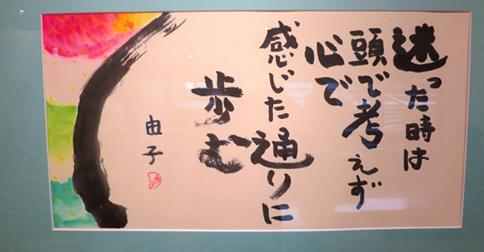 迷った時は
頭で考えず
心で
感じた通りに
歩む
由子